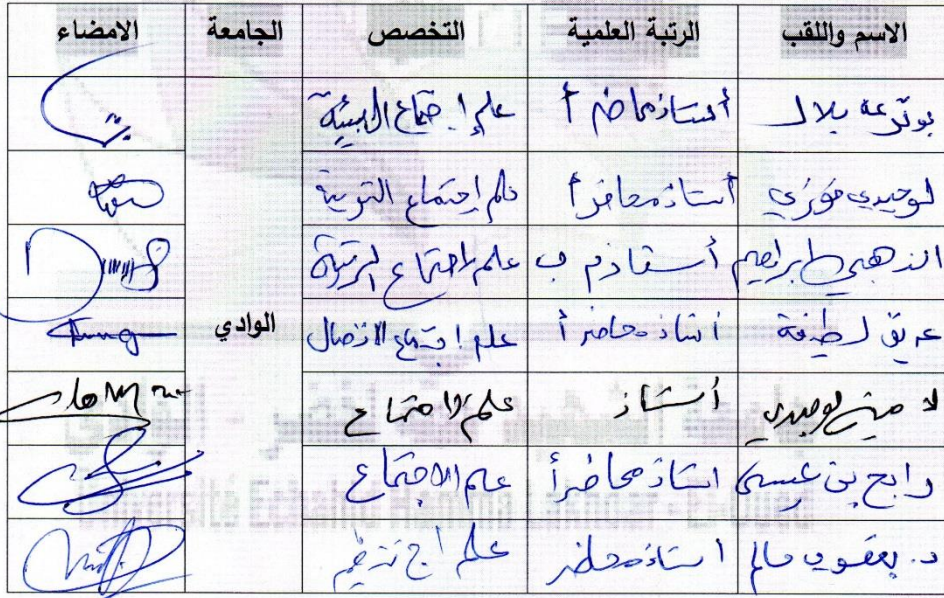 الاسم واللقب الرتبة العلمية التخصص الجامعة الامضاء
بوترعة بلال أستاذ محاضر أ علم اجتماع البيئة
لوحيدي فوزي أستاذ محاضر أ علم إجتماع التربية
الذهبي إبراهيم أستاذ م ب علم الاجتماع التربية
عريق لطيفة أستاذ محاضر أ علم اجتماع الاتصال الوادي
لامين لوحيدي أستاذ علم الاجتماع
رابح بن عيسى استاذ محاضر أ علم الاجتماع
د. يعقوب سالم استاذ محاضر علم اج تنظيم
Université Echahid Hamma Lakhdar - El-Oued